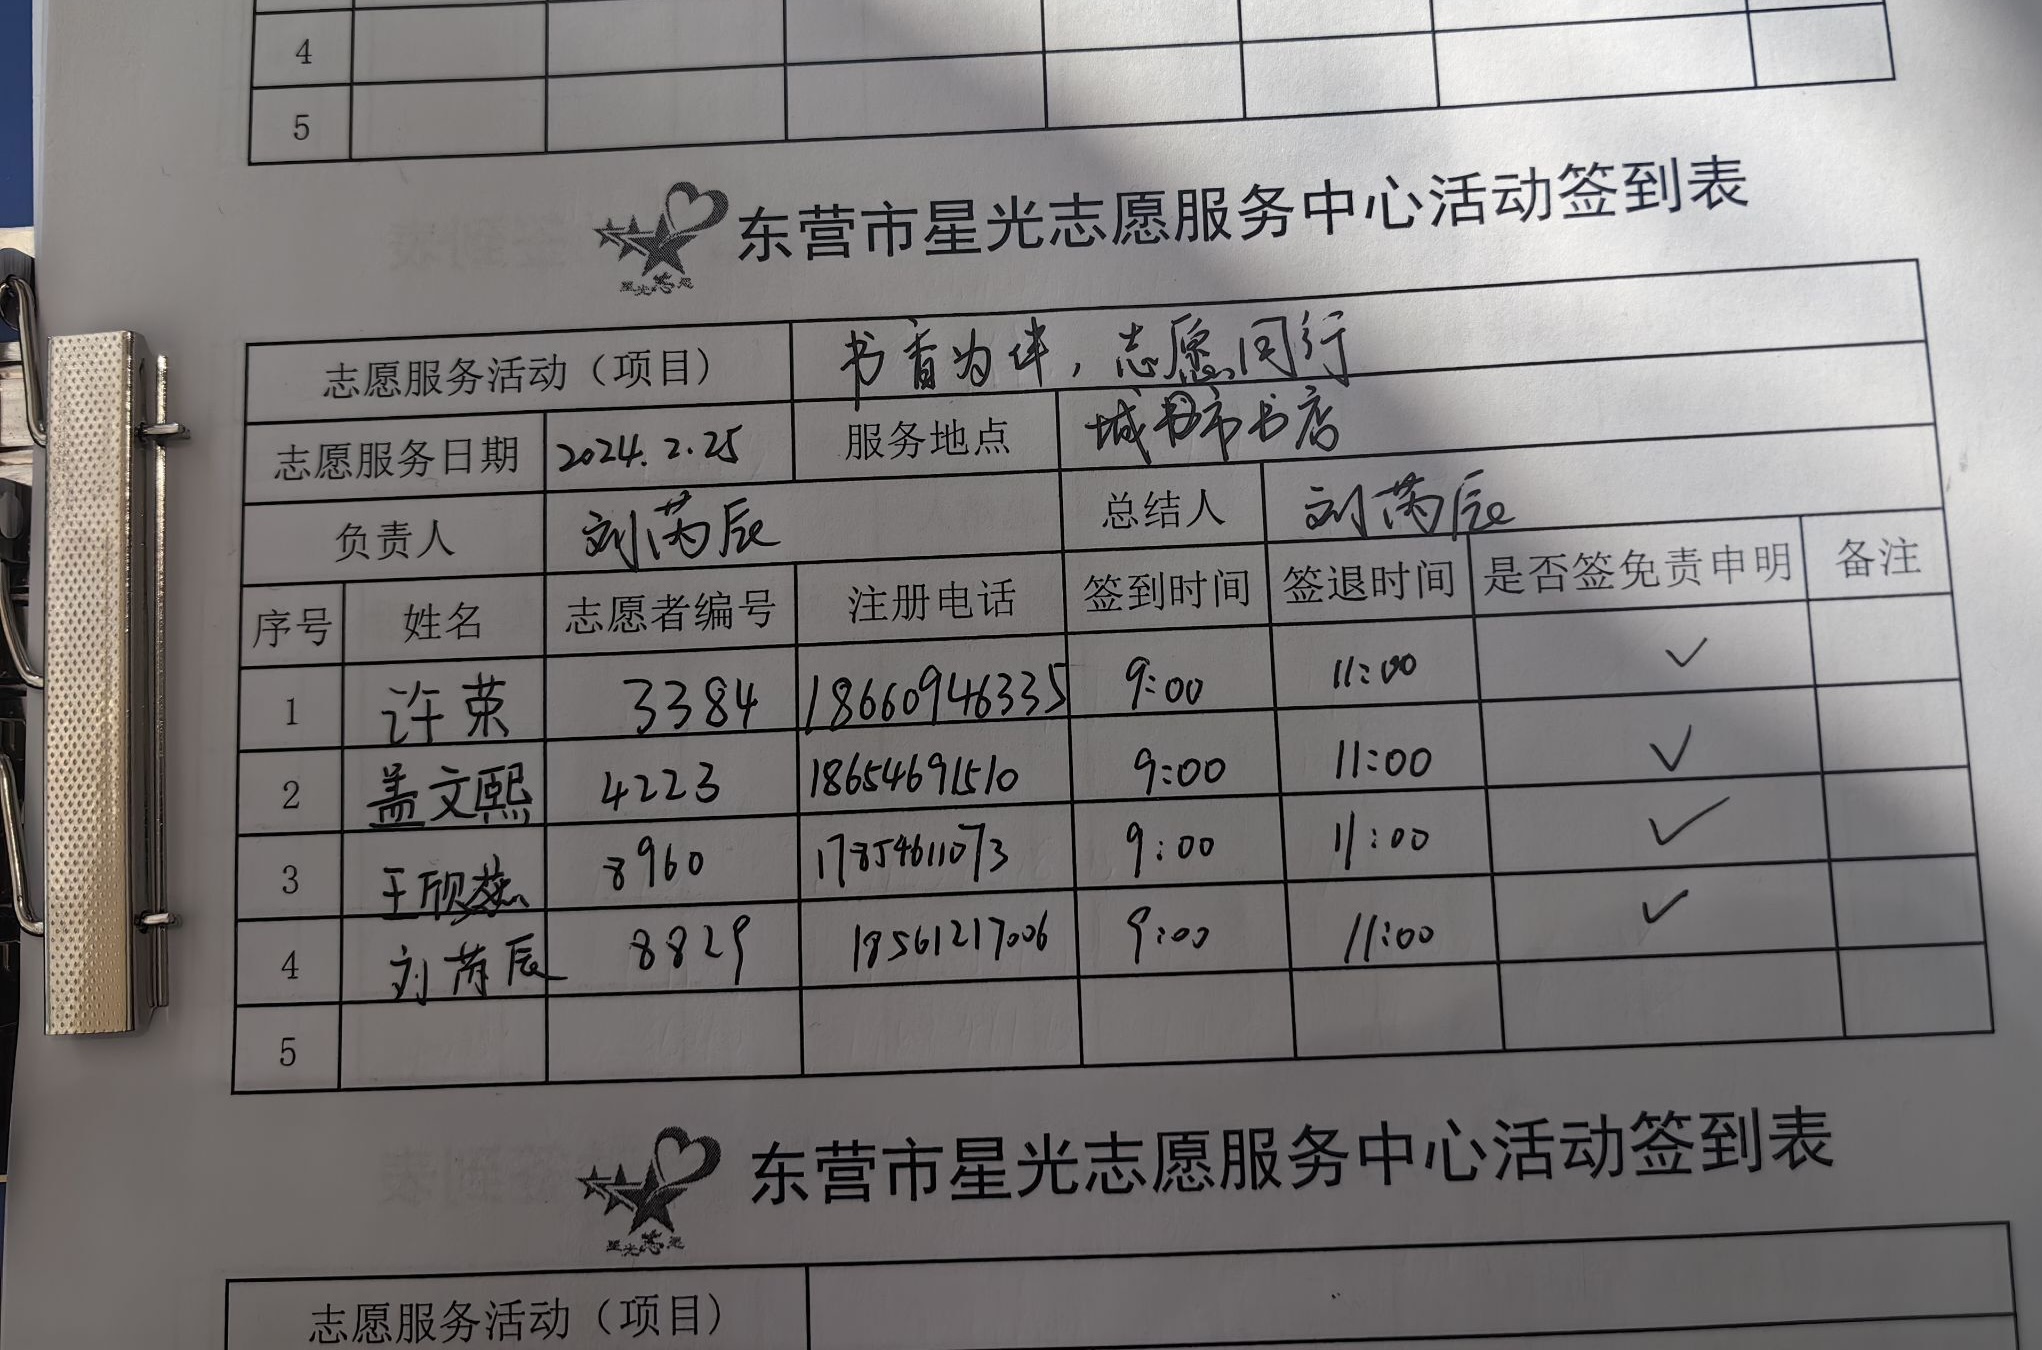 4
5
东营市星光志愿服务中心活动签到表
星光志愿
志愿服务活动（项目） 书香为伴，志愿同行
志愿服务日期 2024.2.25 服务地点 城市书店
负责人 刘芮辰 总结人 刘芮辰
序号 姓名 志愿者编号 注册电话 签到时间 签退时间 是否签免责申明 备注
1 许荣 3384 18660946335 9:00 11:00 ✓
2 盖文熙 4223 18654691510 9:00 11:00 ✓
3 王欣 8960 17854611073 9:00 11:00 ✓
4 刘芮辰 8829 18561217006 9:00 11:00 ✓
5
东营市星光志愿服务中心活动签到表
星光志愿
志愿服务活动（项目）